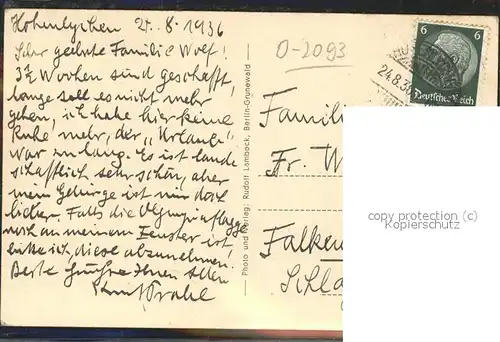 Hohenlychen 25.8.1936
Sehr geehrte Familie Wolf!
3½ Wochen sind geschafft,
lange soll es nicht mehr
gehen, ich habe hier keine
Ruhe mehr, der „Urlaub“
war zu lang. Es ist land-
schaftlich sehr schön, aber
mein Gebirge ist mir doch
lieber. Falls die Olympiaflagge
noch an meinem Fenster ist,
bitte ich, diese abzunehmen!
Beste Grüße Ihnen allen
O-2093
Photo und Verlag: Rudolf Lambeck, Berlin-Grunewald
6 6
Deutsches Reich
24.8.36
Famili
Fr. W
Falken
Schla
copy protection (c)
Kopierschutz